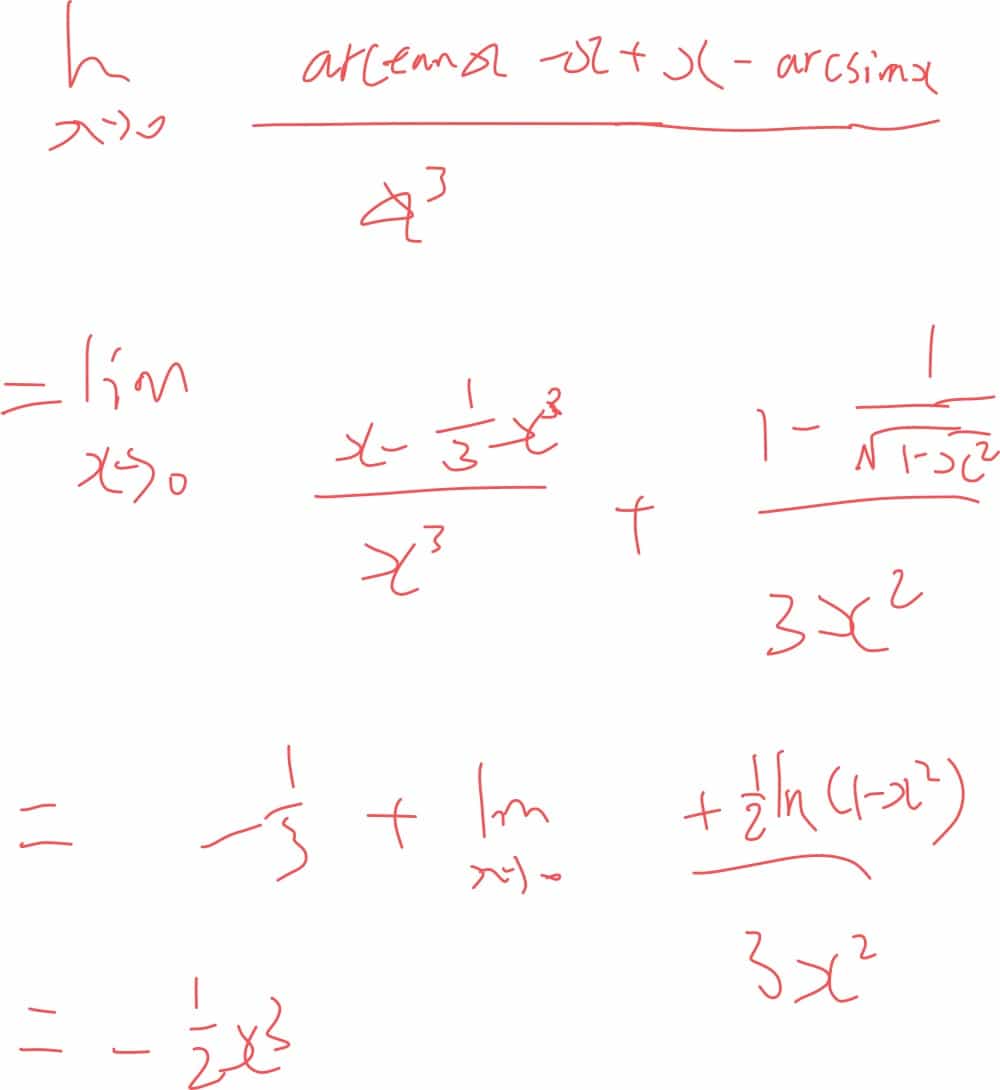 lim_{x→0} (arctanx - x + x - arcsinx) / x^3
= lim_{x→0} (x - 1/3 - x^3) / x^3 + (1 - 1/√(1-x^2)) / 3x^2
= -1/3 + lim_{x→0} (+ 1/2 ln(1-x^2)) / 3x^2
= - 1/2 x^3